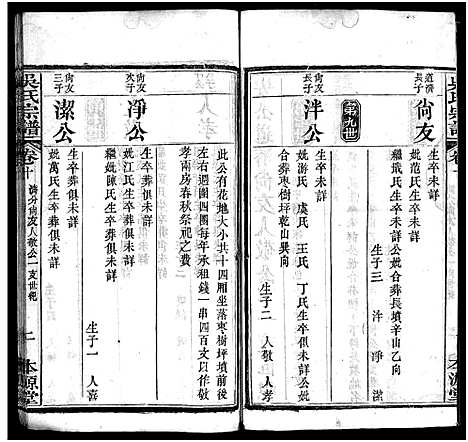 吳氏宗譜
卷十
道濟長子
尙友
生卒未詳
妣范氏生卒未詳
繼戴氏生卒未詳公妣合葬長墳辛山乙向
生子三 泮 淨 潔
第九世
尙友長子
泮公
生卒葬俱未詳
妣游氏 虞氏 王氏 丁氏生卒俱未詳
合葬枣樹坪乾山巽向
生子二 人敬 人孝
此公有花地大小共十四厢坐落枣樹坪墳前後
左右週圍四團每年承租錢一串四百文以作敬
孝南房春秋祭祀之費
尙友次子
淨公
生卒葬俱未詳
妣江氏生卒葬俱未詳
繼妣陳氏生卒葬俱未詳
生子一 人喜
尙友三子
潔公
生卒葬俱未詳
妣萬氏生卒葬俱未詳
吳氏宗譜
卷十
濟分尙友人敬公一支世紀
二
本源堂